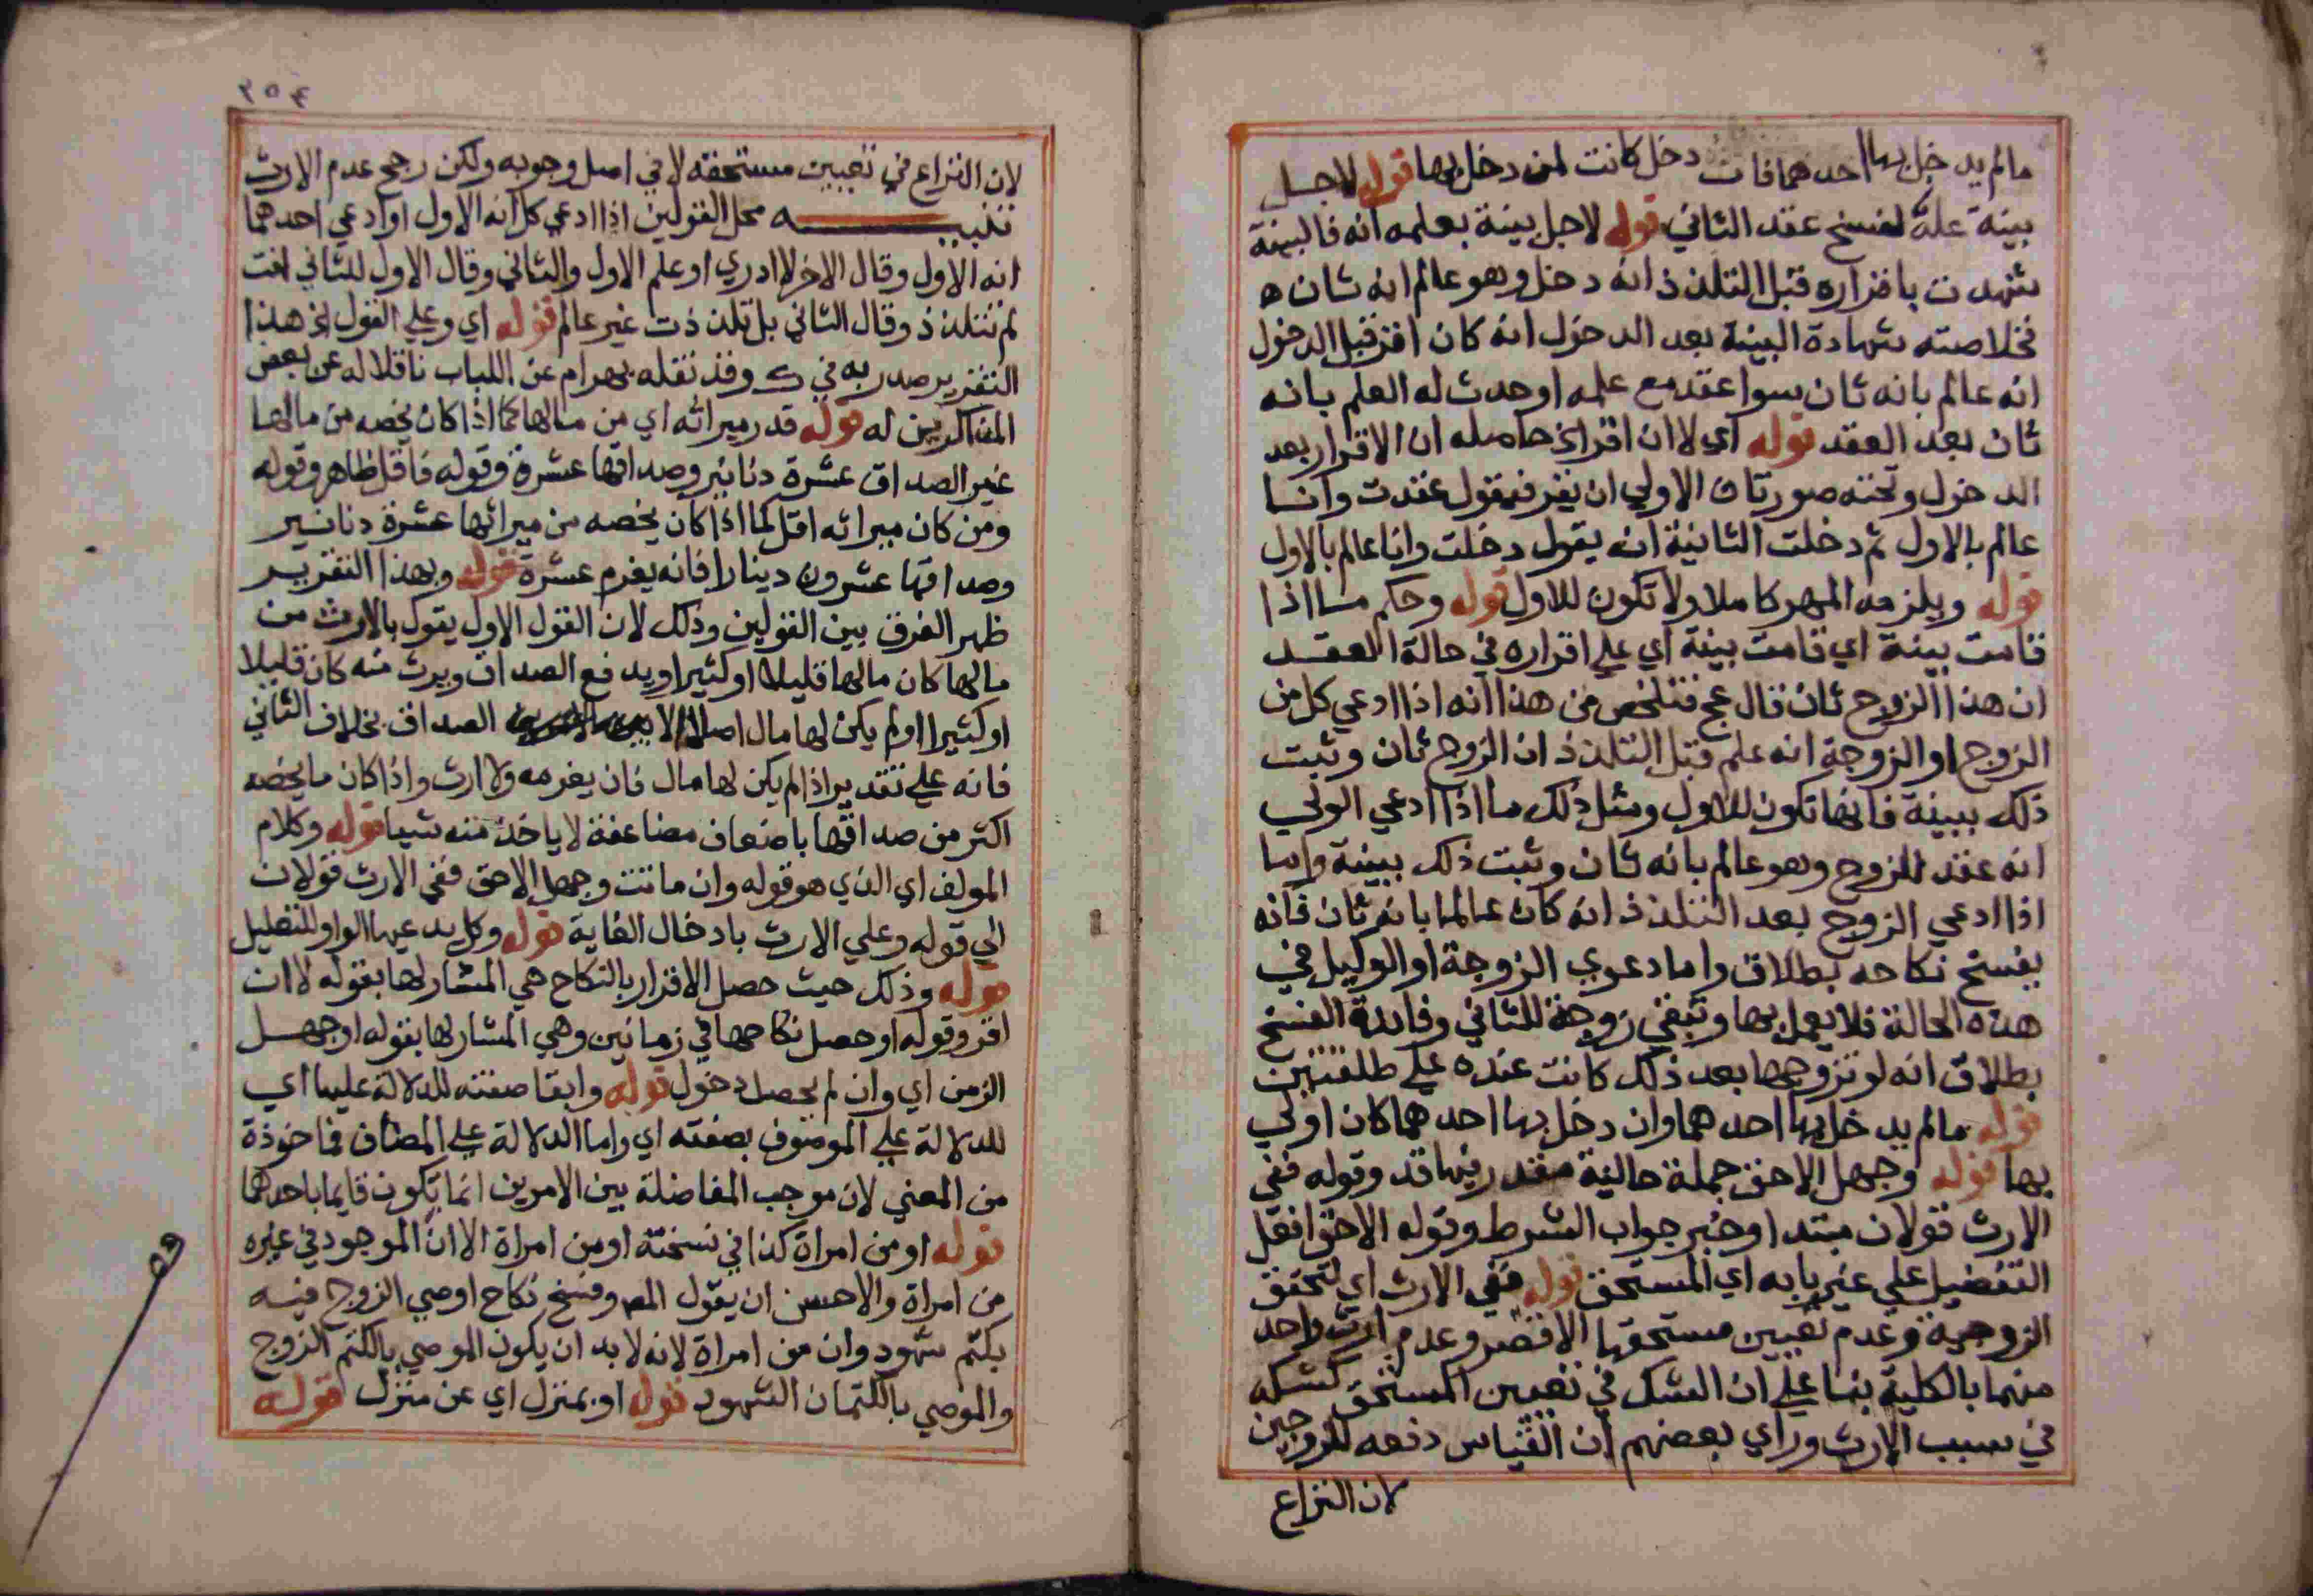 مالم يدخل بها احدهما فان دخل كانت لمن دخل بها قوله لاجل
بينة علة لفسخ عقد الثاني قوله لاجل بينة بعلمه انه فالبينة
شهدت باقراره قبل التلذذ انه دخل وهو عالم انه ثان ه
فخلاصته شهادة البينة بعد الدخول انه كان اقر قبل الدخول
انه عالم بانه ثان سوا عقد مع علمه او حدث له العلم بانه
ثان بعد العقد قوله اي لا ان اقر الخ حاصله ان الاقرار بعد
الدخول وتحته صورتان الاولي ان يقر فيقول عقدت وانا
عالم بالاول ثم دخلت الثانية انه يقول دخلت وانا عالم بالاول
قوله ويلزمه المهر كاملا ولا تكون للاول قوله وحكم ما اذا
قامت بينة اي قامت بينة اي علي اقراره في حالة العقد
ان هذا الزوج ثان قال عج فتلخص من هذا انه اذا ادعي كل من
الزوج او الزوجة انه علم قبل التلذذ ان الزوج ثان وثبت
ذلك ببينة فانها تكون للاول ومثل ذلك ما اذا ادعي الولي
انه عقد للزوج وهو عالم بانه ثان وثبت ذلك ببينة واما
اذا ادعي الزوج بعد التلذذ انه كان عالما بانه ثان فانه
يفسخ نكاحه بطلاق واما دعوي الزوجة او الوكيل في
هذه الحالة فلا يعمل بها وتبقي زوجة للثاني وفائدة الفسخ
بطلاق انه لو تزوجها بعد ذلك كانت عنده علي طلقتين
قوله مالم يدخل بها احدهما وان دخل بها احدهما كان اولي
بها قوله وجهل الاحق جملة حالية مقدر فيها قد وقوله ففي
الارث قولان مبتدا وخبر جواب الشرط وقوله الاحق افعل
التفضيل علي غير بابه اي المستحق قوله ففي الارث اي لتحقق
الزوجية وعدم تعيين مستحقها الاقصر وعدم ارث واحد
منهما بالكلية بنا علي ان الشك في تعيين المستحق كشكه
في سبب الارث وراي بعضهم ان القياس دفعه للزوجين
لان النزاع
٢٥٤
لان النزاع في تعيين مستحقه لا في اصل وجوبه ولكن رجح عدم الارث
تنبيـــــه محل القولين اذا ادعي كل انه الاول او ادعي احدهما
انه الاول وقال الاخر لا ادري او علم الاول والثاني وقال الاول للثاني انت
لم تتلذذ وقال الثاني بل تلذذت غير عالم قوله اي وعلي القول الخ هذا
التقرير صدر به في ك وقد نقله بهرام عن اللباب ناقلا له عن بعض
المذاكرين له قوله قدر ميراثه اي من مالها كما اذا كان يخصه من مالها
غير الصداق عشرة دنانير وصداقها عشرة وقوله فاقل ظاهر وقوله
ومن كان ميراثه اقل كما اذا كان يخصه من ميراثها عشرة دنانير
وصداقها عشرون دينارا فانه يغرم عشرة قوله وبهذا التقرير
ظهر الفرق بين القولين وذلك لان القول الاول يقول بالارث من
مالها كان مالها قليلا او كثيرا ويدفع الصداق ويرث منه كان قليلا
او كثيرا او لم يكن لها مال اصلا الا الصداق بخلاف الثاني
فانه علي تقدير اذا لم يكن لها مال فان يغرمه ولا ارث واذا كان ما يخصه
اكثر من صداقها باضعاف مضاعفة لا ياخذ منه شيا قوله وكلام
المولف اي الذي هو قوله وان ماتت وجهل الاحق ففي الارث قولان
الي قوله وعلي الارث بادخال الغاية قوله وكل يدعيها الواو للتعليل
قوله وذلك حيث حصل الاقرار بالنكاح هي المشار لها بقوله لا ان
اقر وقوله او حصل نكاحها في زمانين وهي المشار لها بقوله او جهل
الزمن اي وان لم يحصل دخول قوله وابقا صفته للدلالة عليها اي
للدلالة علي الموصوف بصفته اي واما الدلالة علي المضاف فماخوذة
من المعني لان موجب المفاضلة بين الامرين انما يكون قايما باحدهما
قوله او من امراة كذا في نسخته او من امراة الا ان الموجود في غيره
من امراة والاحسن ان يقول المص وفسخ نكاح اوصي الزوج فيه
بكتم شهود وان من امراة لانه لا بد ان يكون الموصي بالكتم الزوج
والموصي بالكتمان الشهود قوله او بمنزل اي عن منزل قوله